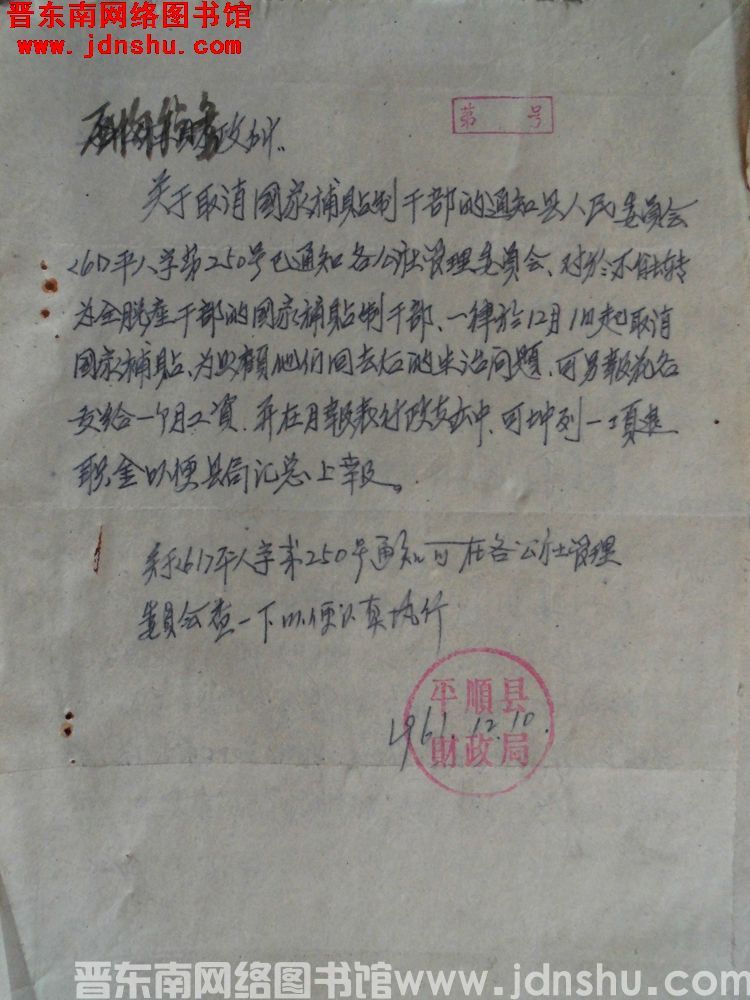 晋东南网络图书馆
www.jdnshu.com
第 号
财政所：
关于取消国家補貼制干部的通知县人民委員会
<61>平人字第250号已通知各公社管理委員会、对於不能转
为全脱産干部的国家補貼制干部、一律於12月1日起取消
国家補貼、为照顧他们回去后的生活问題、可另報花名
支给一个月工資、并在月報表行政支出中、可坤列一项退
职金以便县局汇总上報。
关于<61>平人字第250号通知可在各公社管理
委員会查一下以便认真执行
平順县
1961.12.10.
財政局
晋东南网络图书馆www.jdnshu.com